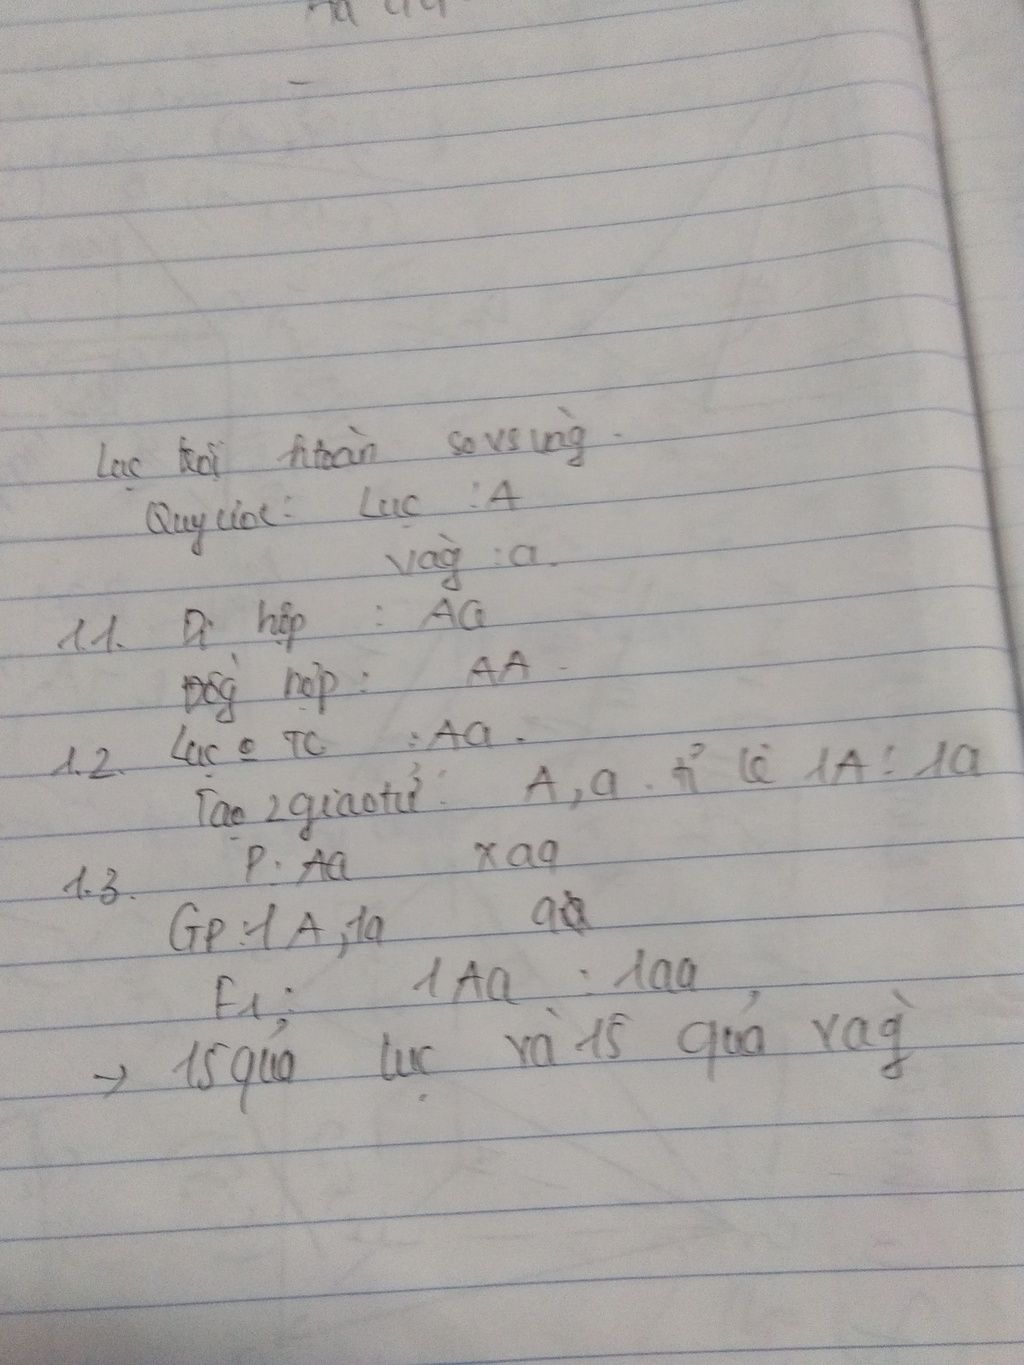 Aa aa
Lục trội htoàn so vs vàg.
Quy ước: Lục : A
vàg : a.
1.1. Dị hợp : Aa
Đồg hợp: AA
1.2. Lục TC : Aa.
Tạo 2 giao tử: A, a. tỉ lệ 1A : 1a
1.3. P: Aa x aa
Gp: 1A, 1a a
F1: 1Aa : 1aa
→ 15 quả lục và 15 quả vàg